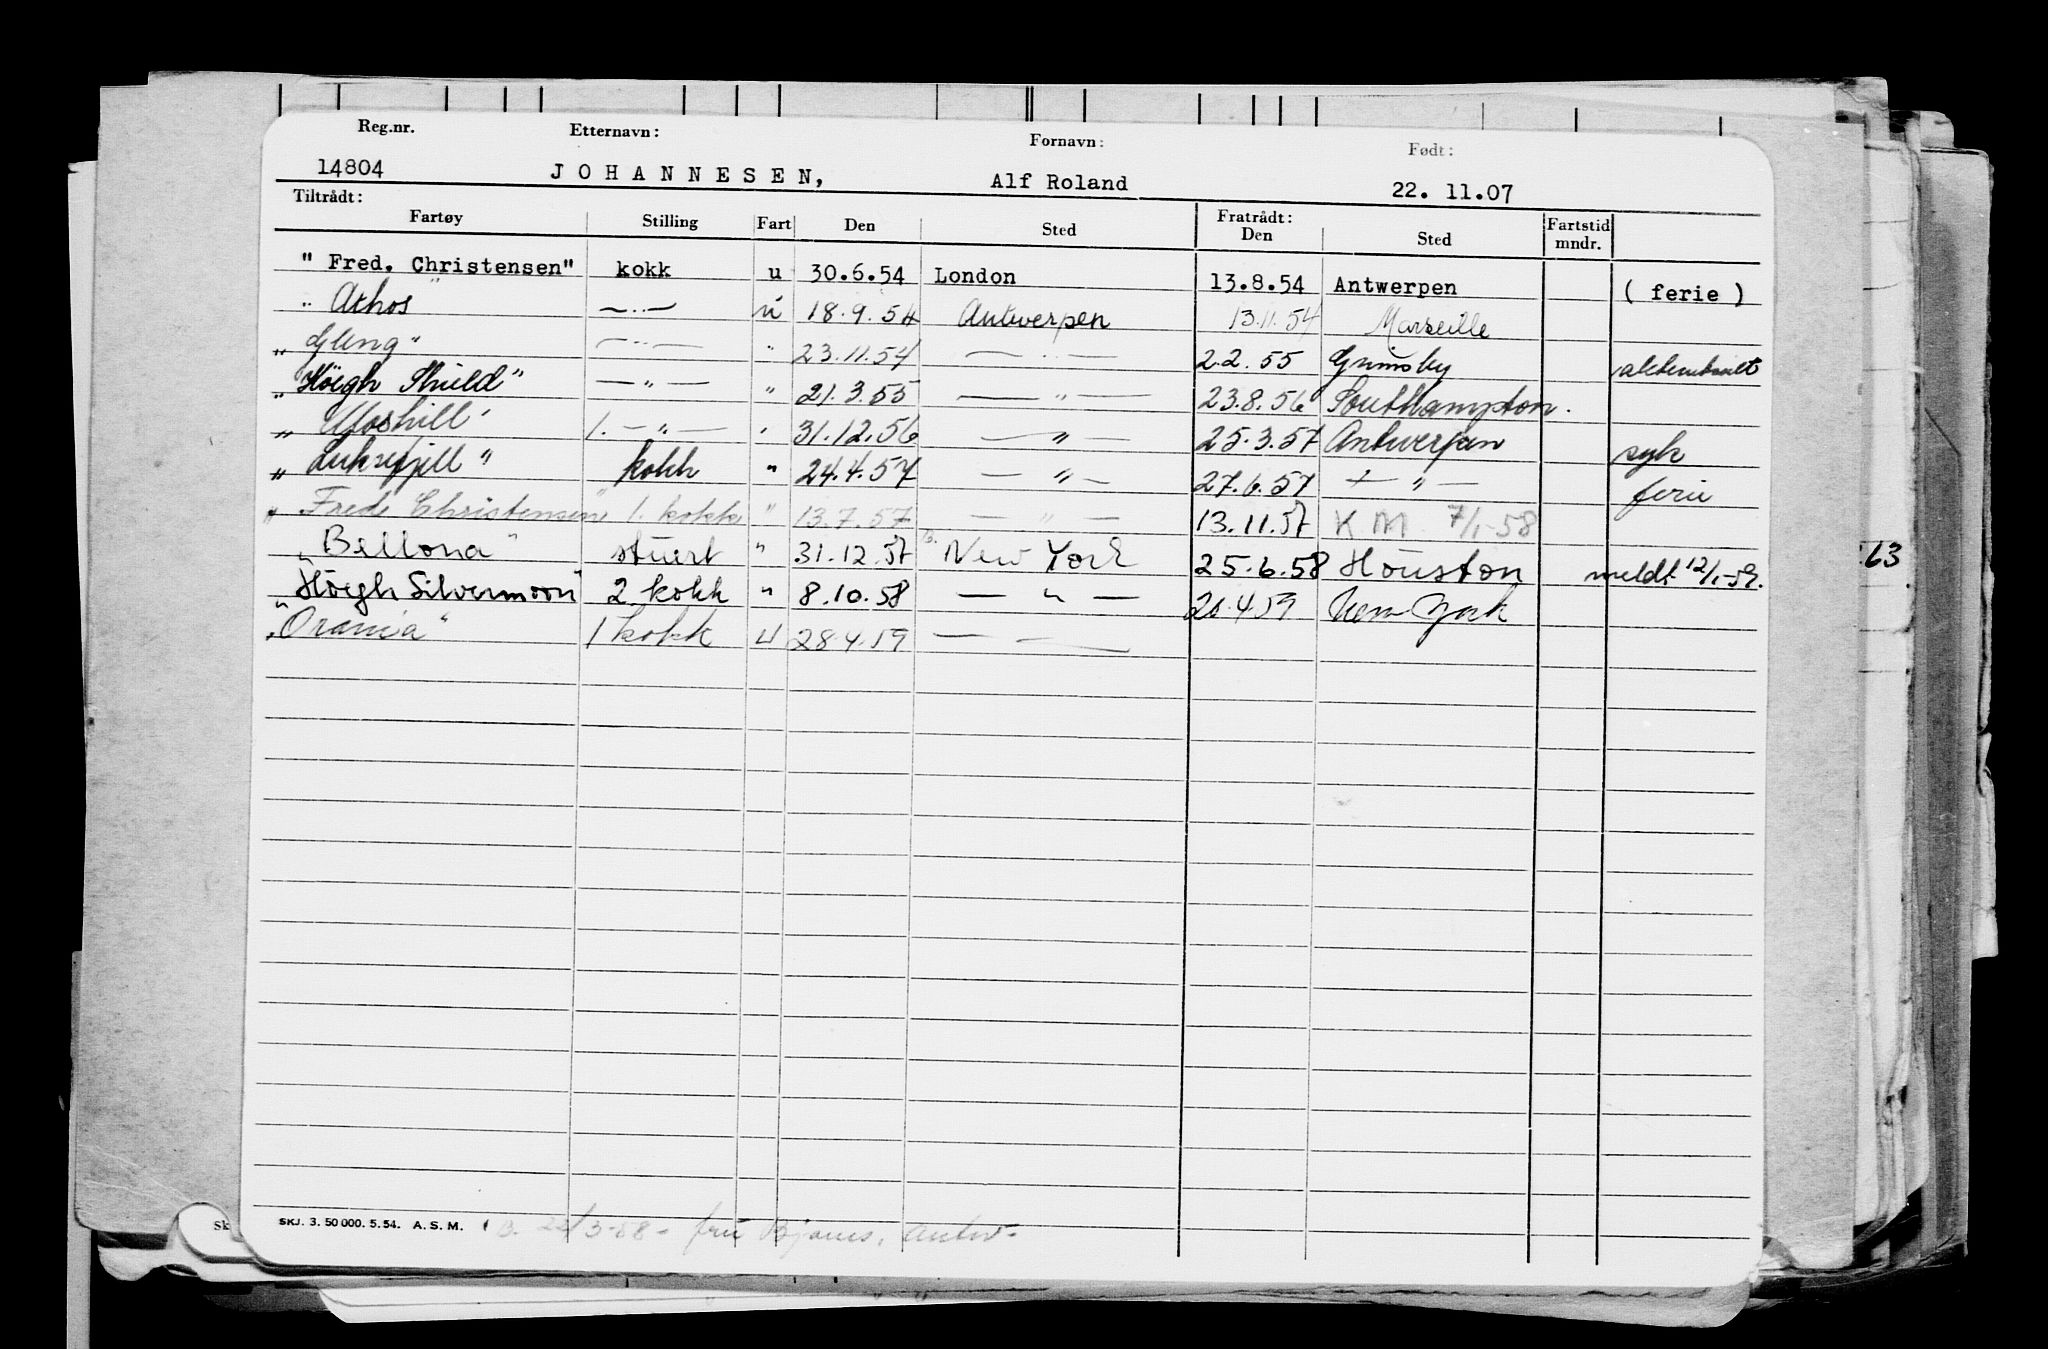 Reg.nr. Etternavn: Fornavn: Født:
14804 JOHANNESEN, Alf Roland 22. 11.07
Tiltrådt: Fratrådt:
Fartøy Stilling Fart Den Sted Den Sted Fartstid mndr.
" Fred. Christensen" kokk u 30.6.54 London 13.8.54 Antwerpen ( ferie )
" Athos " — " — u 18.9.54 Antwerpen 13.11.54 Marseille
" Gleng " — " — " 23.11.54 — " — 2.2.55 Grimsby
" Höegh Shield " — " — " 21.3.55 — " — 23.8.56 Southampton.
" Moshill " 1. — " — " 31.12.56 — " — 25.3.57 Antwerpen syk
" Luksefjell " kokk " 24.4.57 — " — 27.6.57 — " — ferie
" Fred. Christensen " 1. kokk " 13.7.57 — " — 13.11.57 K M 7/1-58
" Bellona " stuert " 31.12.57 New York 25.6.58 Houston meldt 12/1-59.
" Höegh Silvermoon " 2 kokk " 8.10.58 — " — 20.4.59 New York
" Orania " 1 kokk u 28.4.59 — —
63
SKJ. 3. 50 000. 5. 54. A. S. M. B. 22/3-58 - fru Bjarns, Antw.
Sk